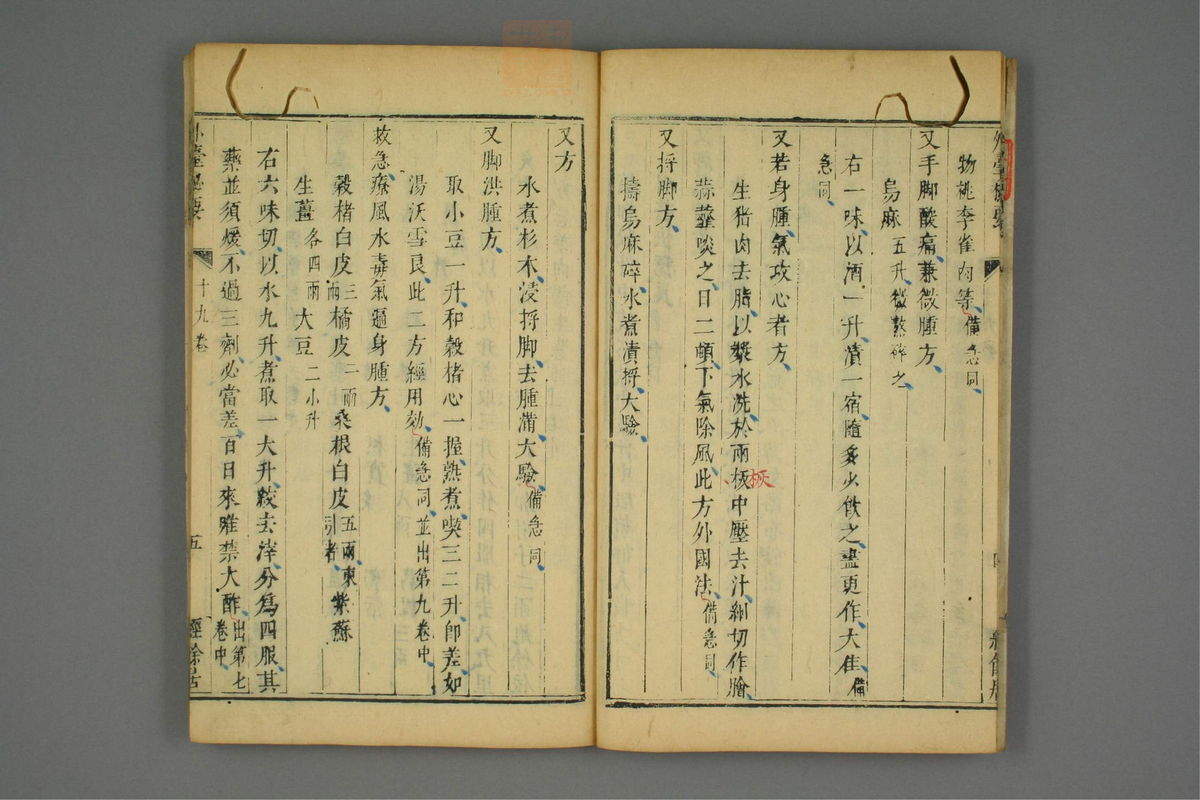 外臺秘要
物桃李雀肉等備急同
又手脚酸痛兼微腫方
烏麻五升微熬碎之
右一味以酒一升漬一宿隨多少飲之盡更作大佳備
急同
又若身腫氣攻心者方
生猪肉去脂以漿水洗於兩板中壓去汁細切作膾
蒜虀啖之日二頓下氣除風此方外國法備急同
又捋脚方
擣烏麻碎水煮漬捋大驗
又方
水煮杉木浸捋脚去腫滿大驗備急同
又脚洪腫方
取小豆一升和穀楮心一握熟煮喫三二升卽差如
湯沃雪良此二方經用効備急同並出第九卷中
救急療風水毒氣遍身腫方
穀楮白皮三兩橘皮一兩桑根白皮五兩東引者紫蘇
生薑各四兩大豆二小升
右六味切以水九升煮取一大升絞去滓分爲四服其
藥並須煖不過三劑必當差百日來雖禁大酢出第七卷中
外臺秘要
十九卷
五
經餘居